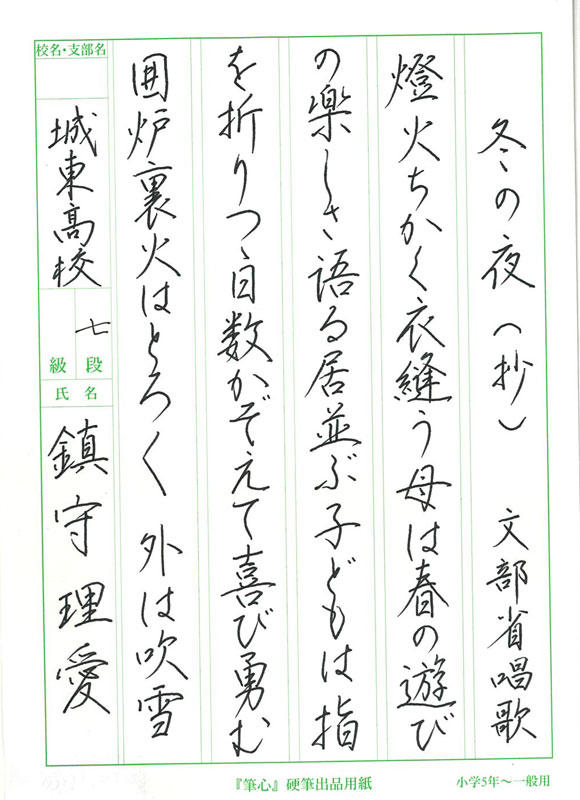 冬の夜（抄）　文部省唱歌
燈火ちかく衣縫う母は春の遊び
の楽しさ語る居並ぶ子どもは指
を折りつゝ日数かぞえて喜び勇む
囲炉裏火はとろ〱　外は吹雪
校名・支部名
城東高校
七段
級
氏名
鎮守理愛
『筆心』硬筆出品用紙
小学5年～一般用